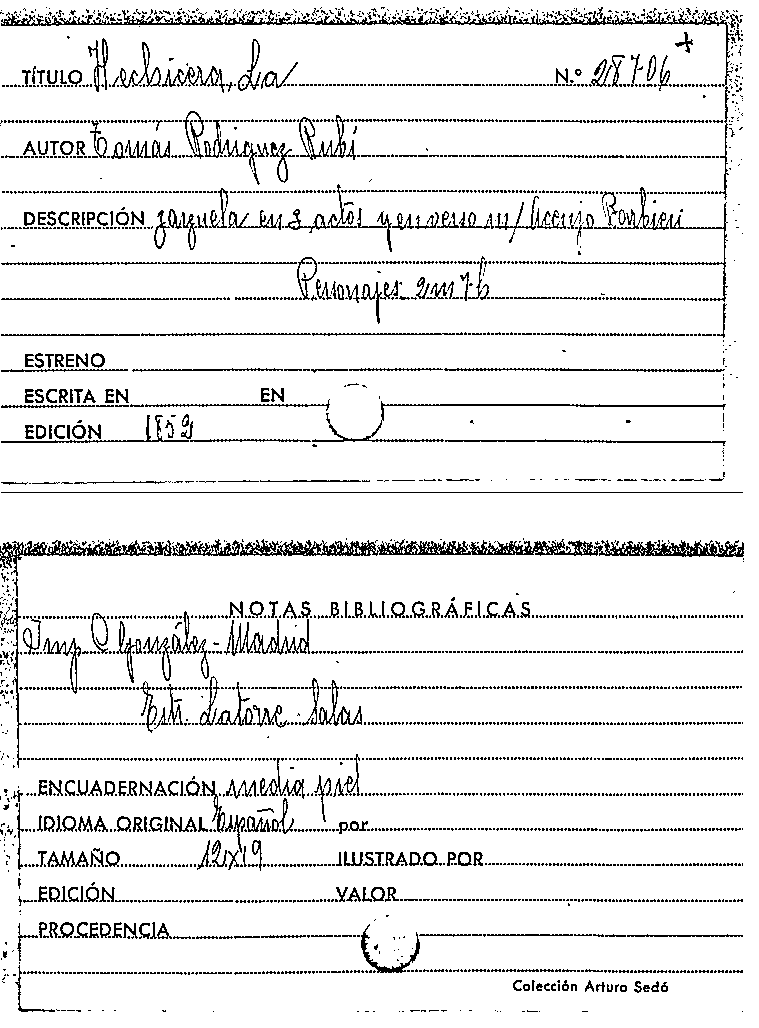 +
TÍTULO Hechicera, La N.º 28706
AUTOR Tomás Rodriguez Rubí
DESCRIPCIÓN zarzuela en 3 actos y en verso m/ Asenjo Barbieri
Personajes 2m 7h
ESTRENO
ESCRITA EN EN
EDICIÓN 1852
NOTAS BIBLIOGRÁFICAS
Imp C González - Madrid
Estr. Latorre - Salas
ENCUADERNACIÓN media piel
IDIOMA ORIGINAL Español por
TAMAÑO 12x19 ILUSTRADO POR
EDICIÓN VALOR
PROCEDENCIA
Colección Arturo Sedó